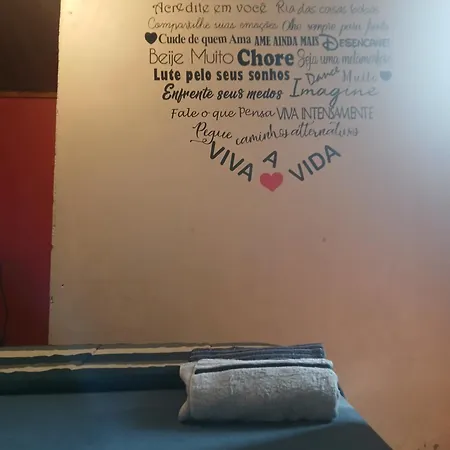 Acredite em você Ria das coisas bobas
Compartilhe suas emoções Olhe sempre para frente
Cuide de quem Ama AME AINDA MAIS DESENCANE
Beije Muito Chore Seja uma metamorfose
Lute pelo seus sonhos Dance Muito
Enfrente seus medos Imagine
Fale o que Pensa VIVA INTENSAMENTE
Pegue caminhos alternativos
VIVA A VIDA